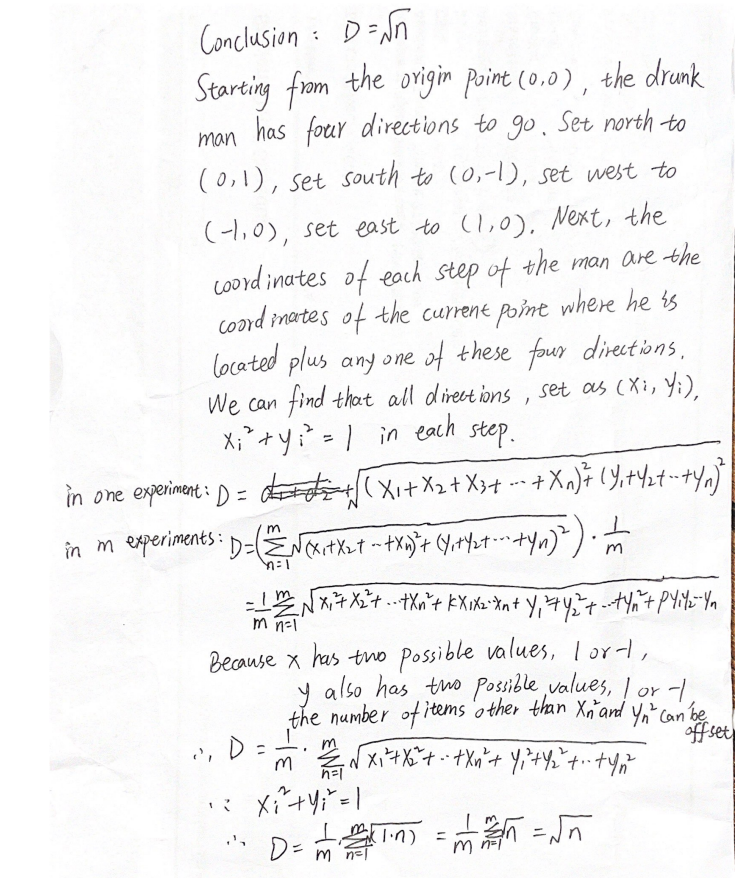 Conclusion : D=√n
Starting from the origin point (0,0), the drunk
man has four directions to go. Set north to
(0,1), set south to (0,-1), set west to
(-1,0), set east to (1,0). Next, the
coordinates of each step of the man are the
coordinates of the current point where he is
located plus any one of these four directions.
We can find that all directions, set as (Xi, Yi),
Xi²+yi²=1 in each step.
in one experiment: D = √(X₁+X₂+X₃+···+Xn)²+(Y₁+Y₂+···+Yn)²
in m experiments: D=(∑ᵐₙ₌₁√(X₁+X₂+···+Xn)²+(Y₁+Y₂+···+Yn)²)·1/m
=1/m ∑ᵐₙ₌₁ √X₁²+X₂²+···+Xn²+kX₁X₂··Xn+Y₁²+Y₂²+···+Yn²+PY₁Y₂··Yn
Because x has two possible values, 1 or -1,
y also has two possible values, 1 or -1
the number of items other than Xn² and Yn² can be offset
∴ D = 1/m · ∑ᵐₙ₌₁ √X₁²+X₂²+···+Xn²+Y₁²+Y₂²+···+Yn²
∵ Xi²+Yi²=1
∴ D = 1/m · ∑ᵐₙ₌₁ √(1·n) = 1/m ∑ᵐₙ₌₁ √n = √n